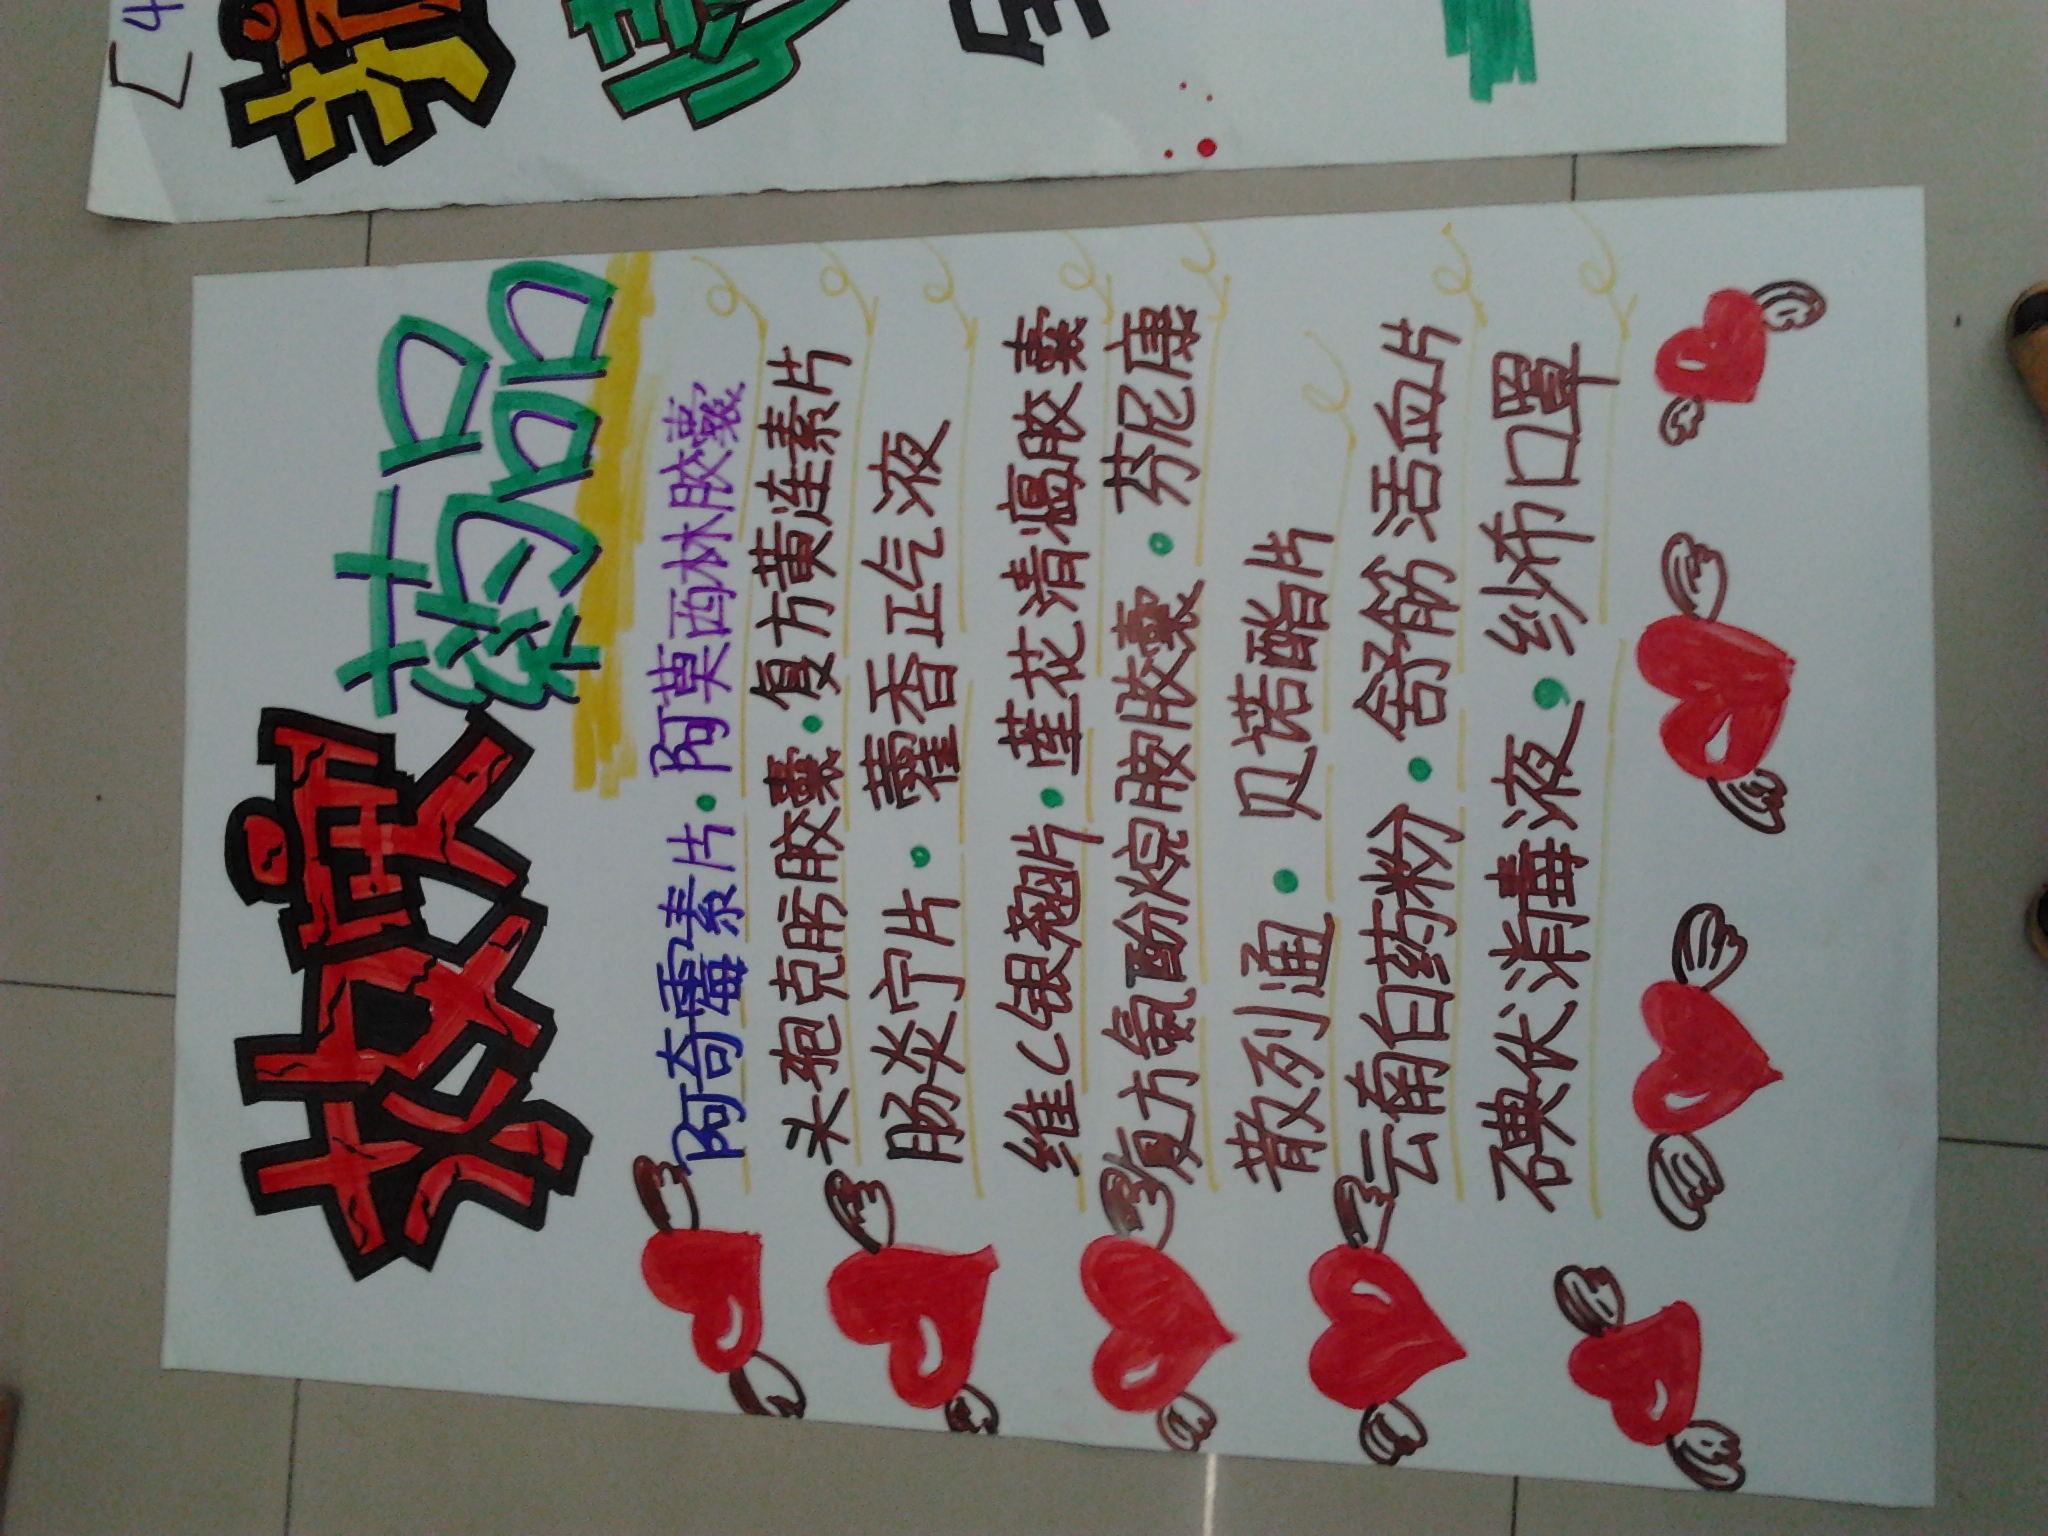 救灾药品
阿奇霉素片·阿莫西林胶囊
头孢克肟胶囊·复方黄连素片
肠炎宁片·藿香正气液
维C银翘片·莲花清瘟胶囊
复方氨酚烷胺胶囊·芬尼康
散列通·贝诺酯片
云南白药粉·舒筋活血片
碘伏消毒液,纱布口罩